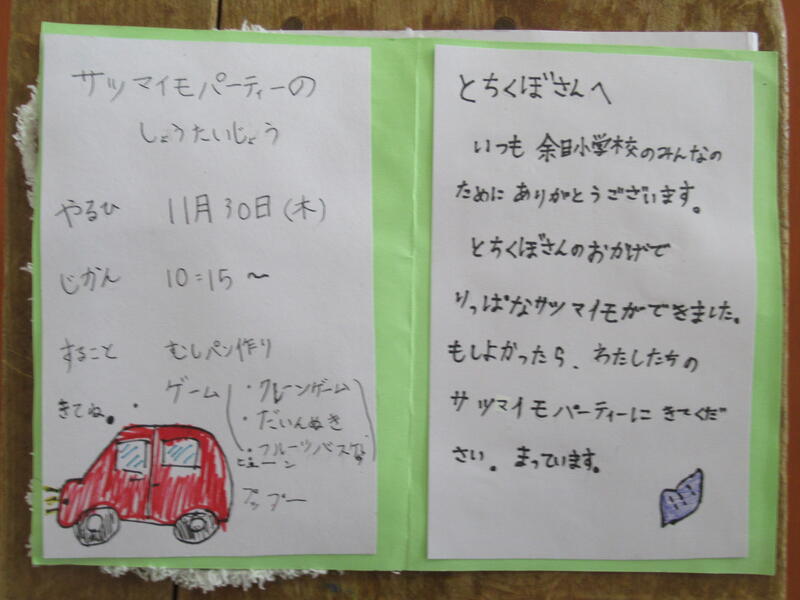 サツマイモパーティーの
しょうたいじょう
やるひ 11月30日(木)
じかん 10:15〜
すること むしパン作り
ゲーム
・クレーンゲーム
・だいんぬき
・フルーツバスケット
きてね。
ビューン
ブップー
とちくぼさんへ
いつも 余目小学校のみんなの
ために ありがとうございます。
とちくぼさんのおかげで
りっぱなサツマイモができました。
もしよかったら、わたしたちの
サツマイモパーティーに きてくだ
さい。まっています。